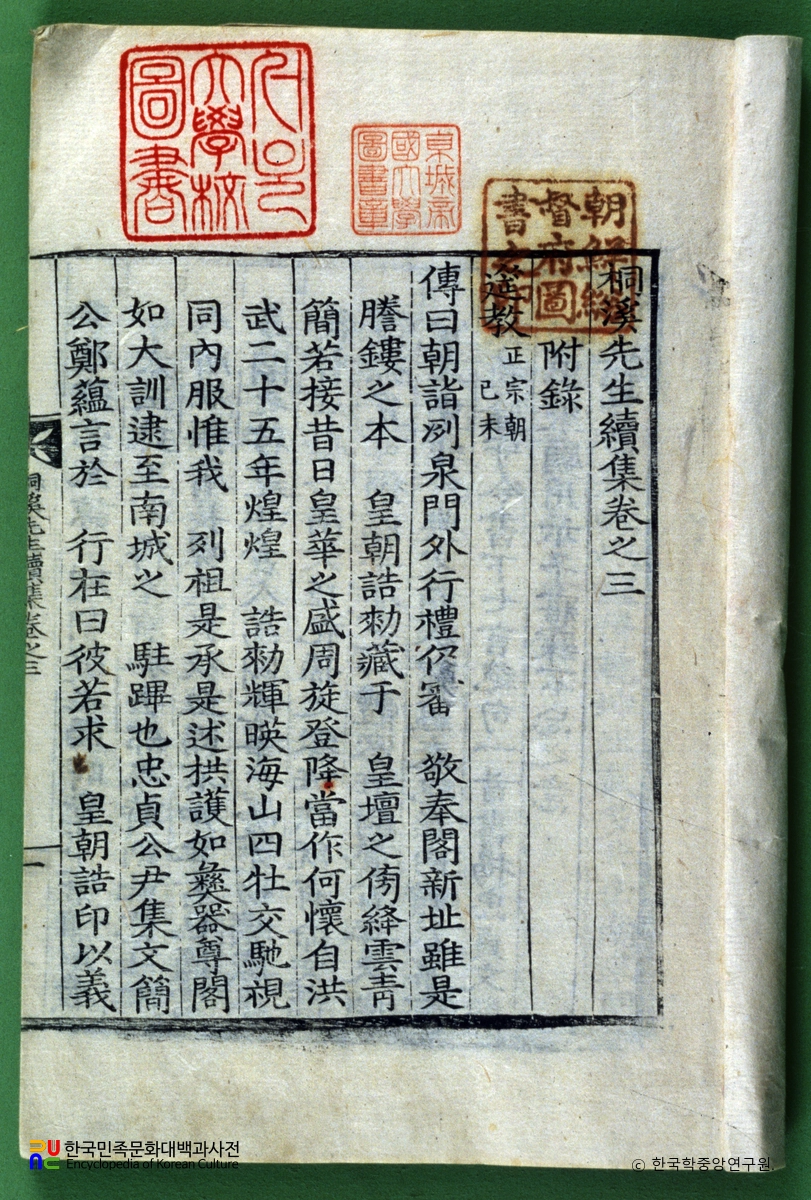 桐溪先生續集卷之三
附錄
筵教 正宗朝 己未
傳曰朝詣洌泉門外行禮仍審 敬奉閣新址雖是
謄鏤之本 皇朝誥勑藏于 皇壇之傍絳雲靑
簡若接昔日皇華之盛周旋登降當作何懷自洪
武二十五年煌煌 誥勑輝暎海山四牡交馳視
同內服惟我 列祖是承是述拱護如彝器尊閣
如大訓逮至南城之 駐蹕也忠貞公尹集文簡
公鄭蘊言於 行在曰彼若求 皇朝誥印以義
桐溪先生續集卷之三
一
朝鮮總督府圖書之印
京城帝國大學圖書章
서울大學校圖書
한국민족문화대백과사전
Encyclopedia of Korean Culture
© 한국학중앙연구원